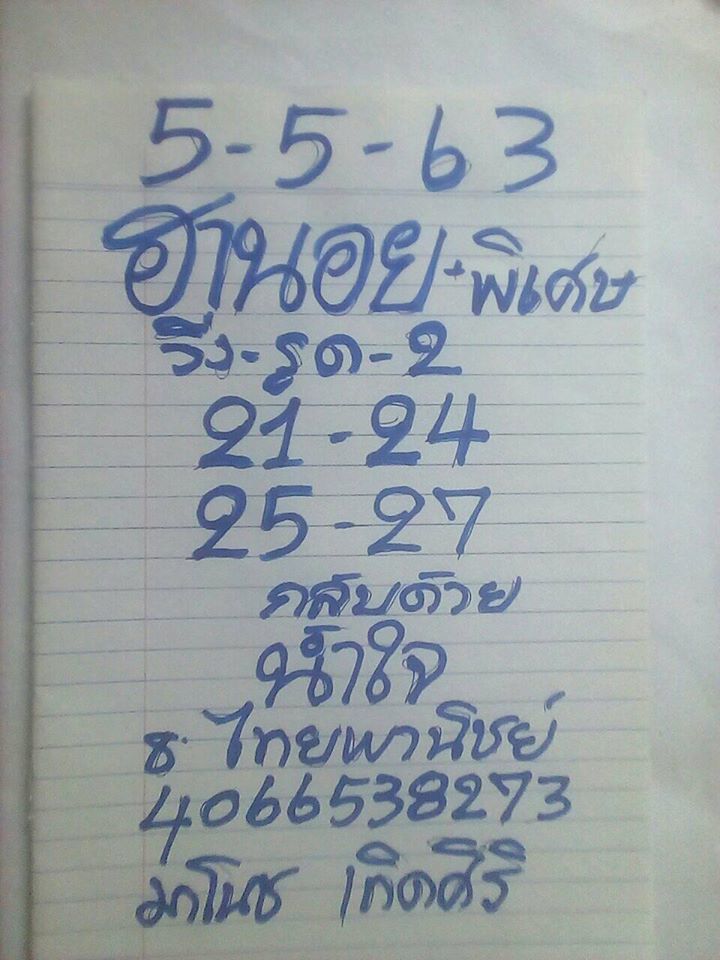 5-5-63
ฮานอย+พิเศษ
วิ่ง-รูด-2
21-24
25-27
กลับด้วย
น้ำใจ
ธ. ไทยพานิชย์
4066538273
มาโนช เกิดศิริ